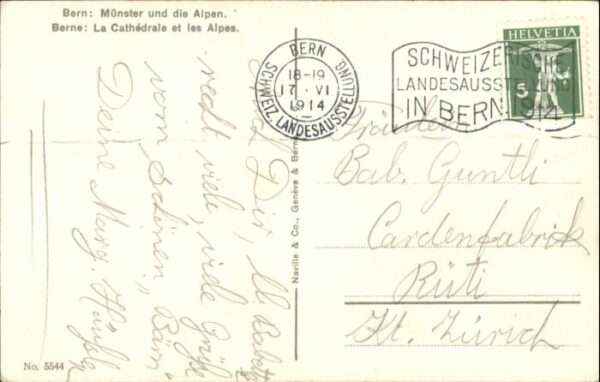 Bern: Münster und die Alpen.
Berne: La Cathédrale et les Alpes.
Dir,
redt viele, viele Grüße
vom schönen „Bärn"
Deine Marg.
No. 5544
Naville & Co., Genève & Berne
BERN
18-19
17 · VI
1914
SCHWEIZ. LANDESAUSSTELLUNG
SCHWEIZERISCHE
LANDESAUSSTELLUNG
IN BERN 1914
HELVETIA
5
Fräulein
Bab. Guntli
Cardenfabrik
Rüti
Kt. Zürich